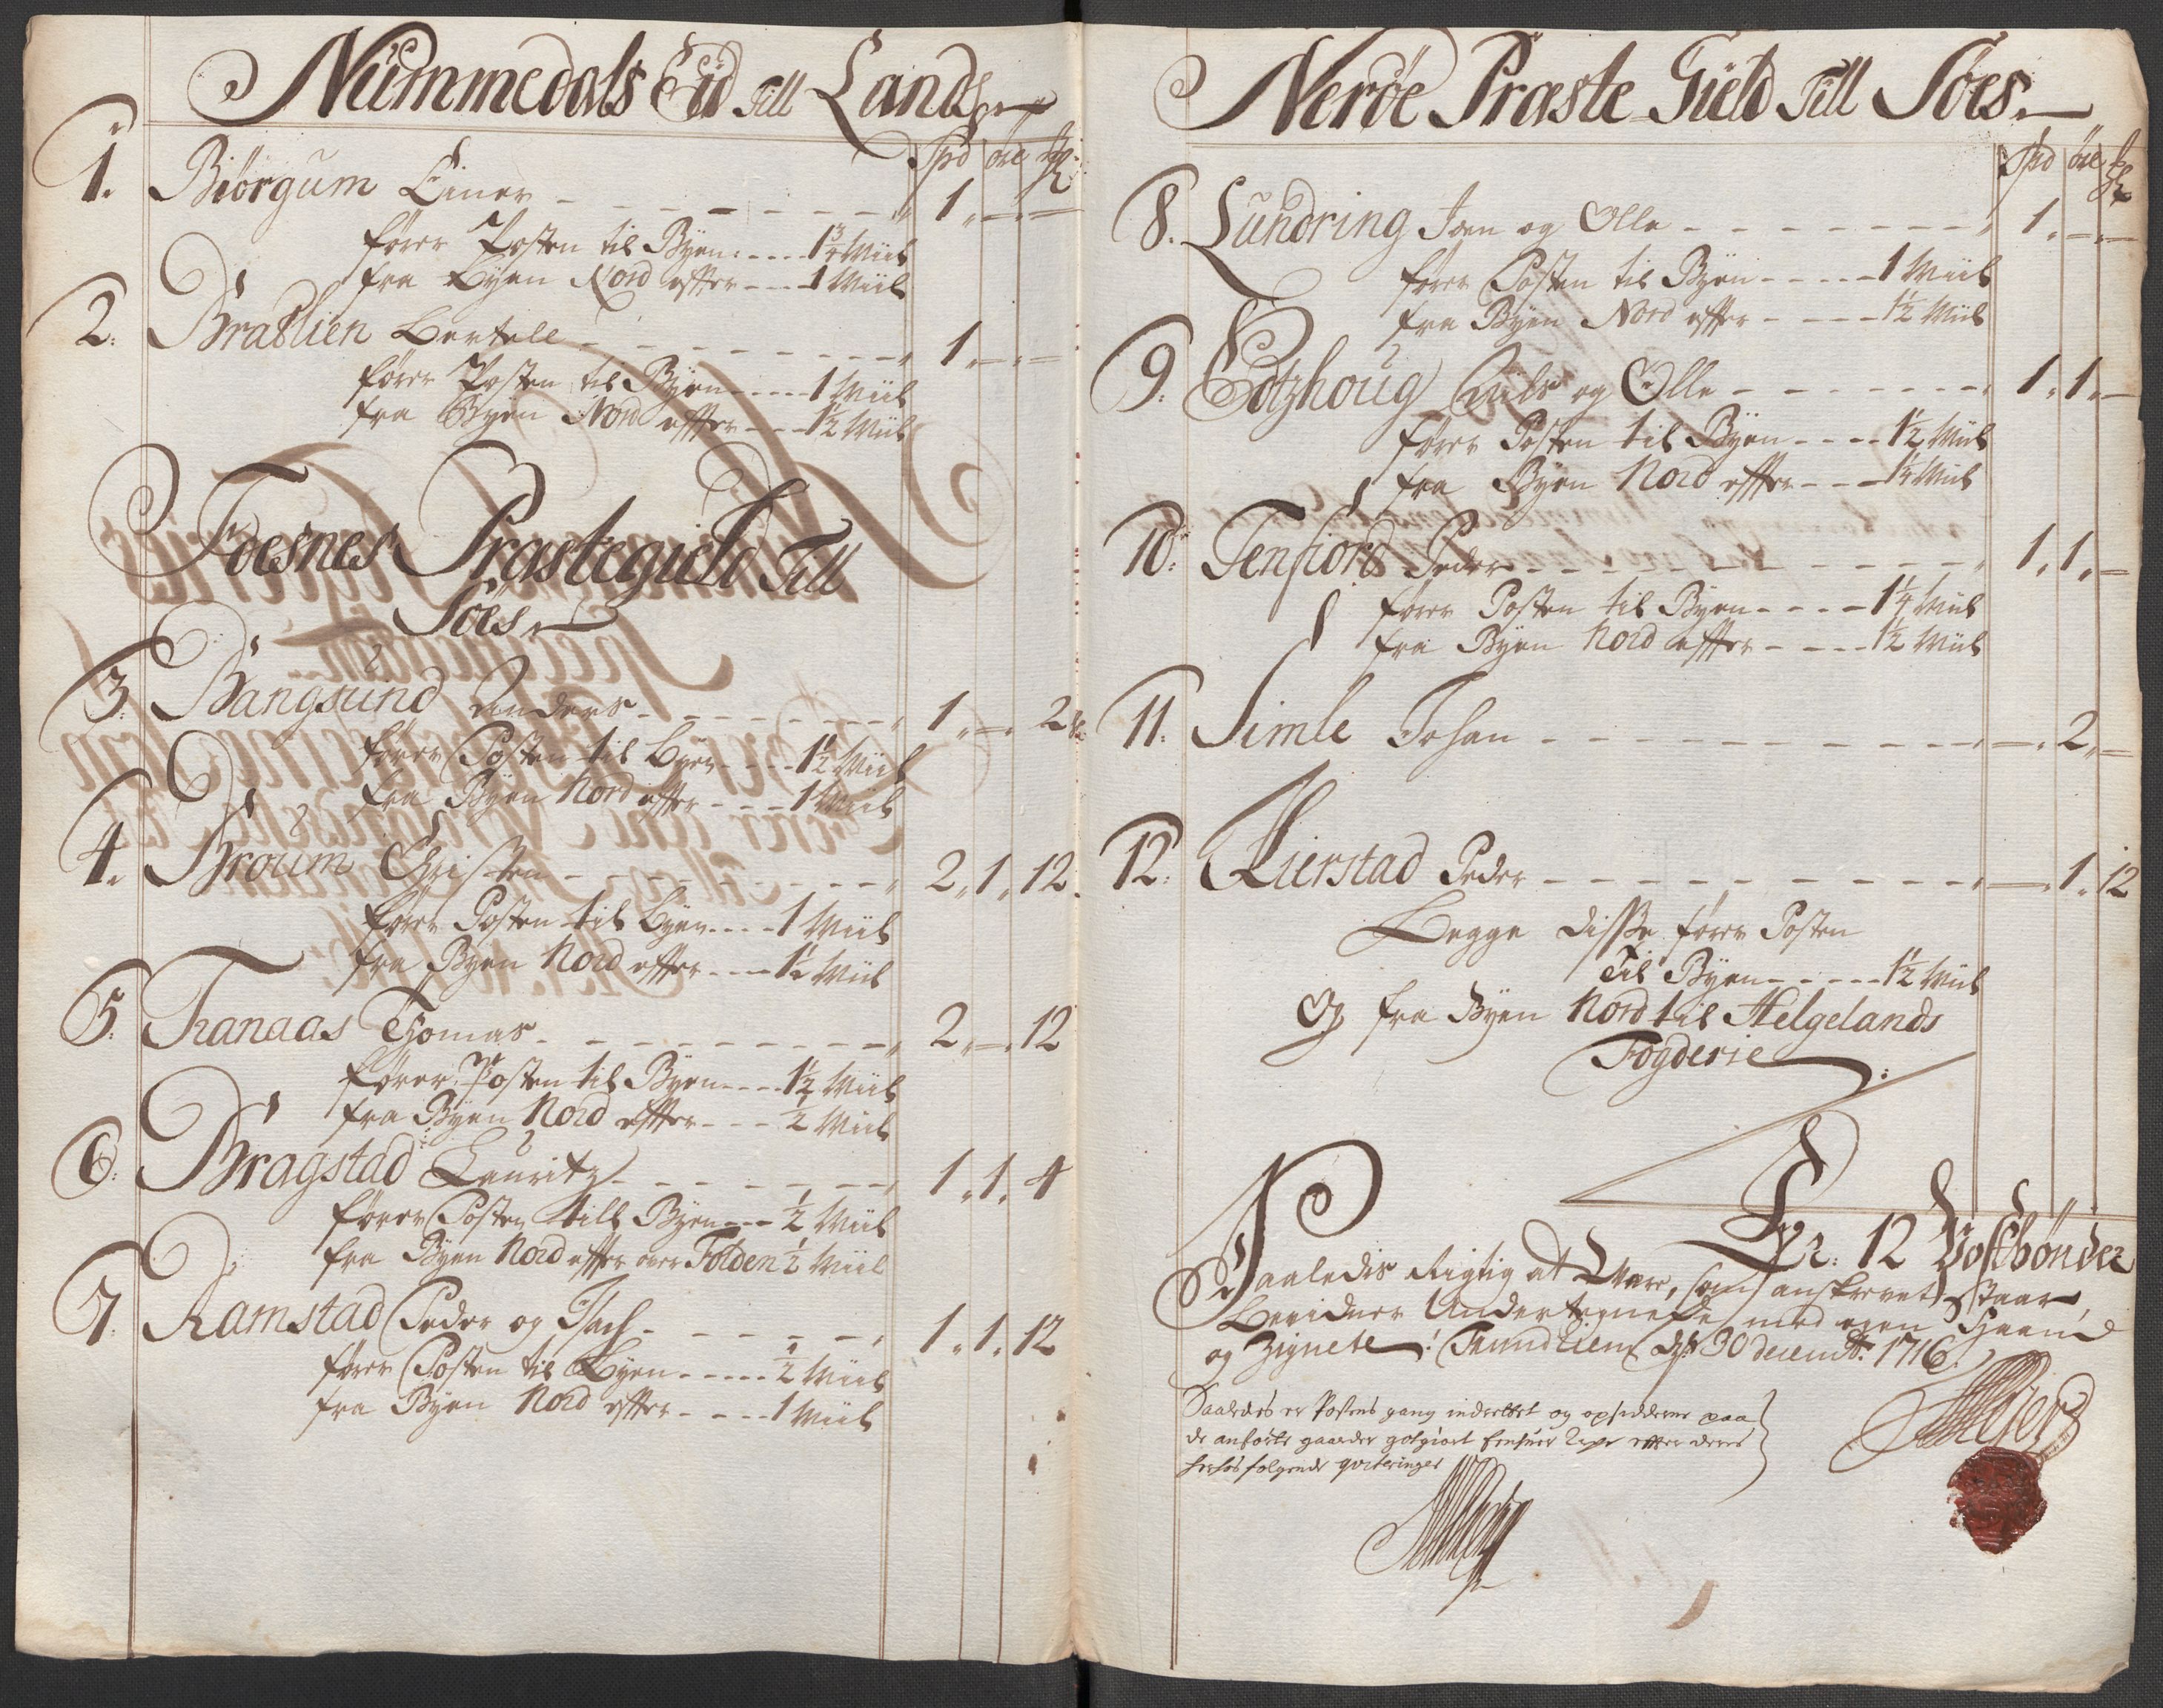 Nummedals Eid till Lands
Spd øre ₰
1. Biörgum Einer - - - 1 " — " —
fører Posten til Byen: - - - - 1¾ Miil
fra Byen Nord effter - - - 1 Miil
2. Bratlien Bertell - - - 1 — " —
fører Posten til Byen - - - - 1 Miil
fra Byen Nord effter - - - 1½ Miil
Foesnes Præstegield Till
Söes
3. Bangsund Anders - - - 1 " — " 2
fører Posten til Byen - - - - 1½ Miil
fra Byen Nord effter - - - 1 Miil
4. Broum Christen - - - 2 " 1 " 12
fører Posten til Byen - - - - 1 Miil
fra Byen Nord effter - - - 1½ Miil
5. Tranaas Thomas - - - 2 " — " 12
fører Posten til Byen - - - - 1½ Miil
fra Byen Nord effter - - - ½ Miil
6. Bragstad Lauritz - - - 1 " 1 " 4
fører Posten till Byen - - - ½ Miil
fra Byen Nord effter over Folden ½ Miil
7. Ramstad Peder og - - - 1 " 1 " 12
fører Posten til Byen - - - - - ½ Miil
fra Byen Nord effter - - - - 1 Miil
Nerøe Præste Gield Till Söes
Spd øre ₰
8. Lundring Joen og Olle - - - 1 " — " —
fører Posten til Byen - - - - - 1 Miil
fra Byen Nord effter - - - - 1½ Miil
9. Nils og Olle - - - 1 " 1 " —
fører Posten til Byen - - - - 1½ Miil
fra Byen Nord effter - - - 1¼ Miil
10. Tenfiord Peder - - - 1 " 1 " —
fører Posten til Byen - - - - 1¼ Miil
fra Byen Nord effter - - - - 1½ Miil
11. Simle Johan - - - — " 2 " —
12. Kierstad Peder - - - — " 1 " 12
Begge disse fører Posten
Til Byen - - - - - 1½ Miil
Og fra Byen Nord til Helgelands
Fogderie
Er: 12 Postbönder
Saaledis Rigtig at Være, som anskrevet staar,
Bevidner Undertegnede med egen Haand
og Zignete: Trundhiem d: 30 decembr: 1716.
Saaledes er Postens gang indrettet og opsidderne paa
de anførte gaarder godgiort effter deres
hoesfølgende qviteringer